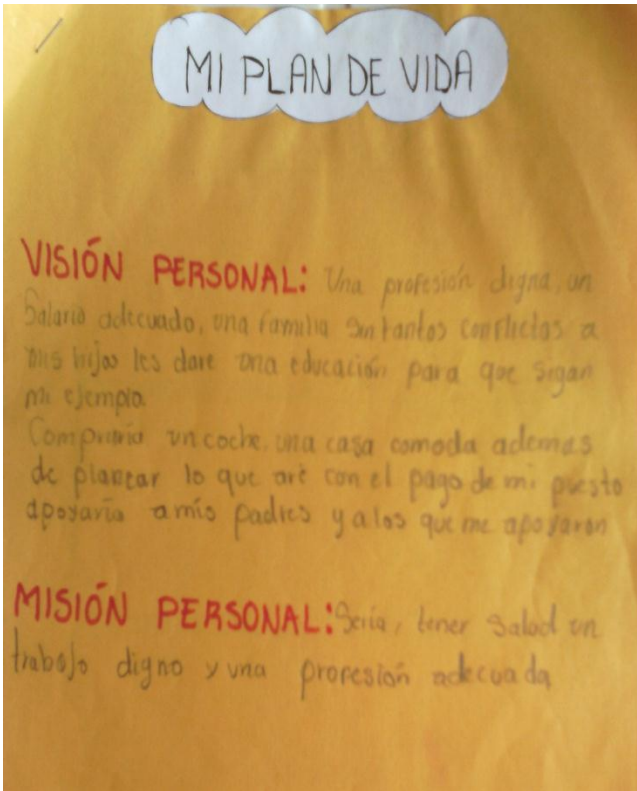 MI PLAN DE VIDA
VISIÓN PERSONAL: Una profesión digna, un
Salario adecuado, una familia sin tantos conflictos a
mis hijos les dare una educación para que sigan
mi ejemplo.
Compraria un coche, una casa comoda ademas
de plantar lo que aré con el pago de mi puesto
apoyaria a mis padres y a los que me apoyaron
MISIÓN PERSONAL: Seria, tener salod un
trabajo digno y una profesión adecuada